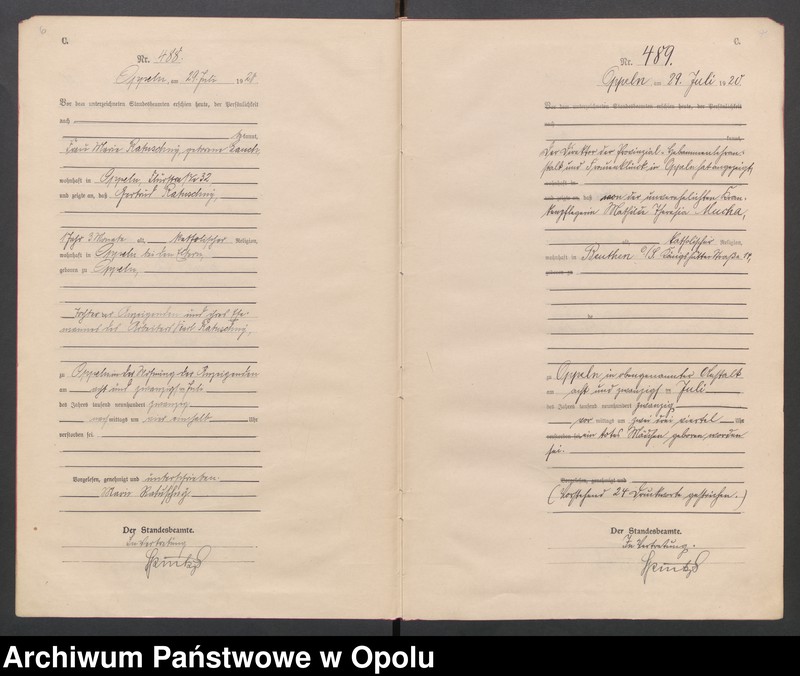 C.
Nr. 488.
Oppeln, am 29. Juli 1920
Vor dem unterzeichneten Standesbeamten erschien heute, der Persönlichkeit
nach
kannt,
Frau Marie Ratuschny, geborene
wohnhaft in Oppeln, 32
und zeigte an, daß Gertrud Ratuschny,
1 Jahr 3 Monate alt, katholischer Religion,
wohnhaft in Oppeln bei den Eltern
geboren zu Oppeln,
Tochter der Anzeigenden und ihres Ehe-
mannes des Arbeiters Karl Ratuschny,
zu Oppeln in der Wohnung der Anzeigenden
am acht und zwanzigsten Juli
des Jahres tausend neunhundert zwanzig
nachmittags um vier einhalb Uhr
verstorben sei.
Vorgelesen, genehmigt und unterschrieben.
Marie Ratuschny
Der Standesbeamte.
In Vertretung
C.
Nr. 489.
Oppeln am 29. Juli 1920
Vor dem unterzeichneten Standesbeamten erschien heute, der Persönlichkeit
nach
kannt,
Der Direktor der Provinzial-Hebammenlehran-
stalt und Frauenklinik in Oppeln hat angezeigt,
wohnhaft in
und zeigte an, daß von der unverehelichten Kran-
kenpflegerin Mathilde Theresia Murka,
alt, katholischer Religion,
wohnhaft in Beuthen O/S. Königshütter Straße
geboren zu
zu Oppeln in obengenannter Anstalt
am acht und zwanzigsten Juli
des Jahres tausend neunhundert zwanzig
vor mittags um zwei drei viertel Uhr
verstorben sei ein totes Mädchen geboren worden
sei.
Vorgelesen, genehmigt und
(Vorstehend 24 Druckworte gestrichen.)
Der Standesbeamte.
In Vertretung.
Archiwum Państwowe w Opolu